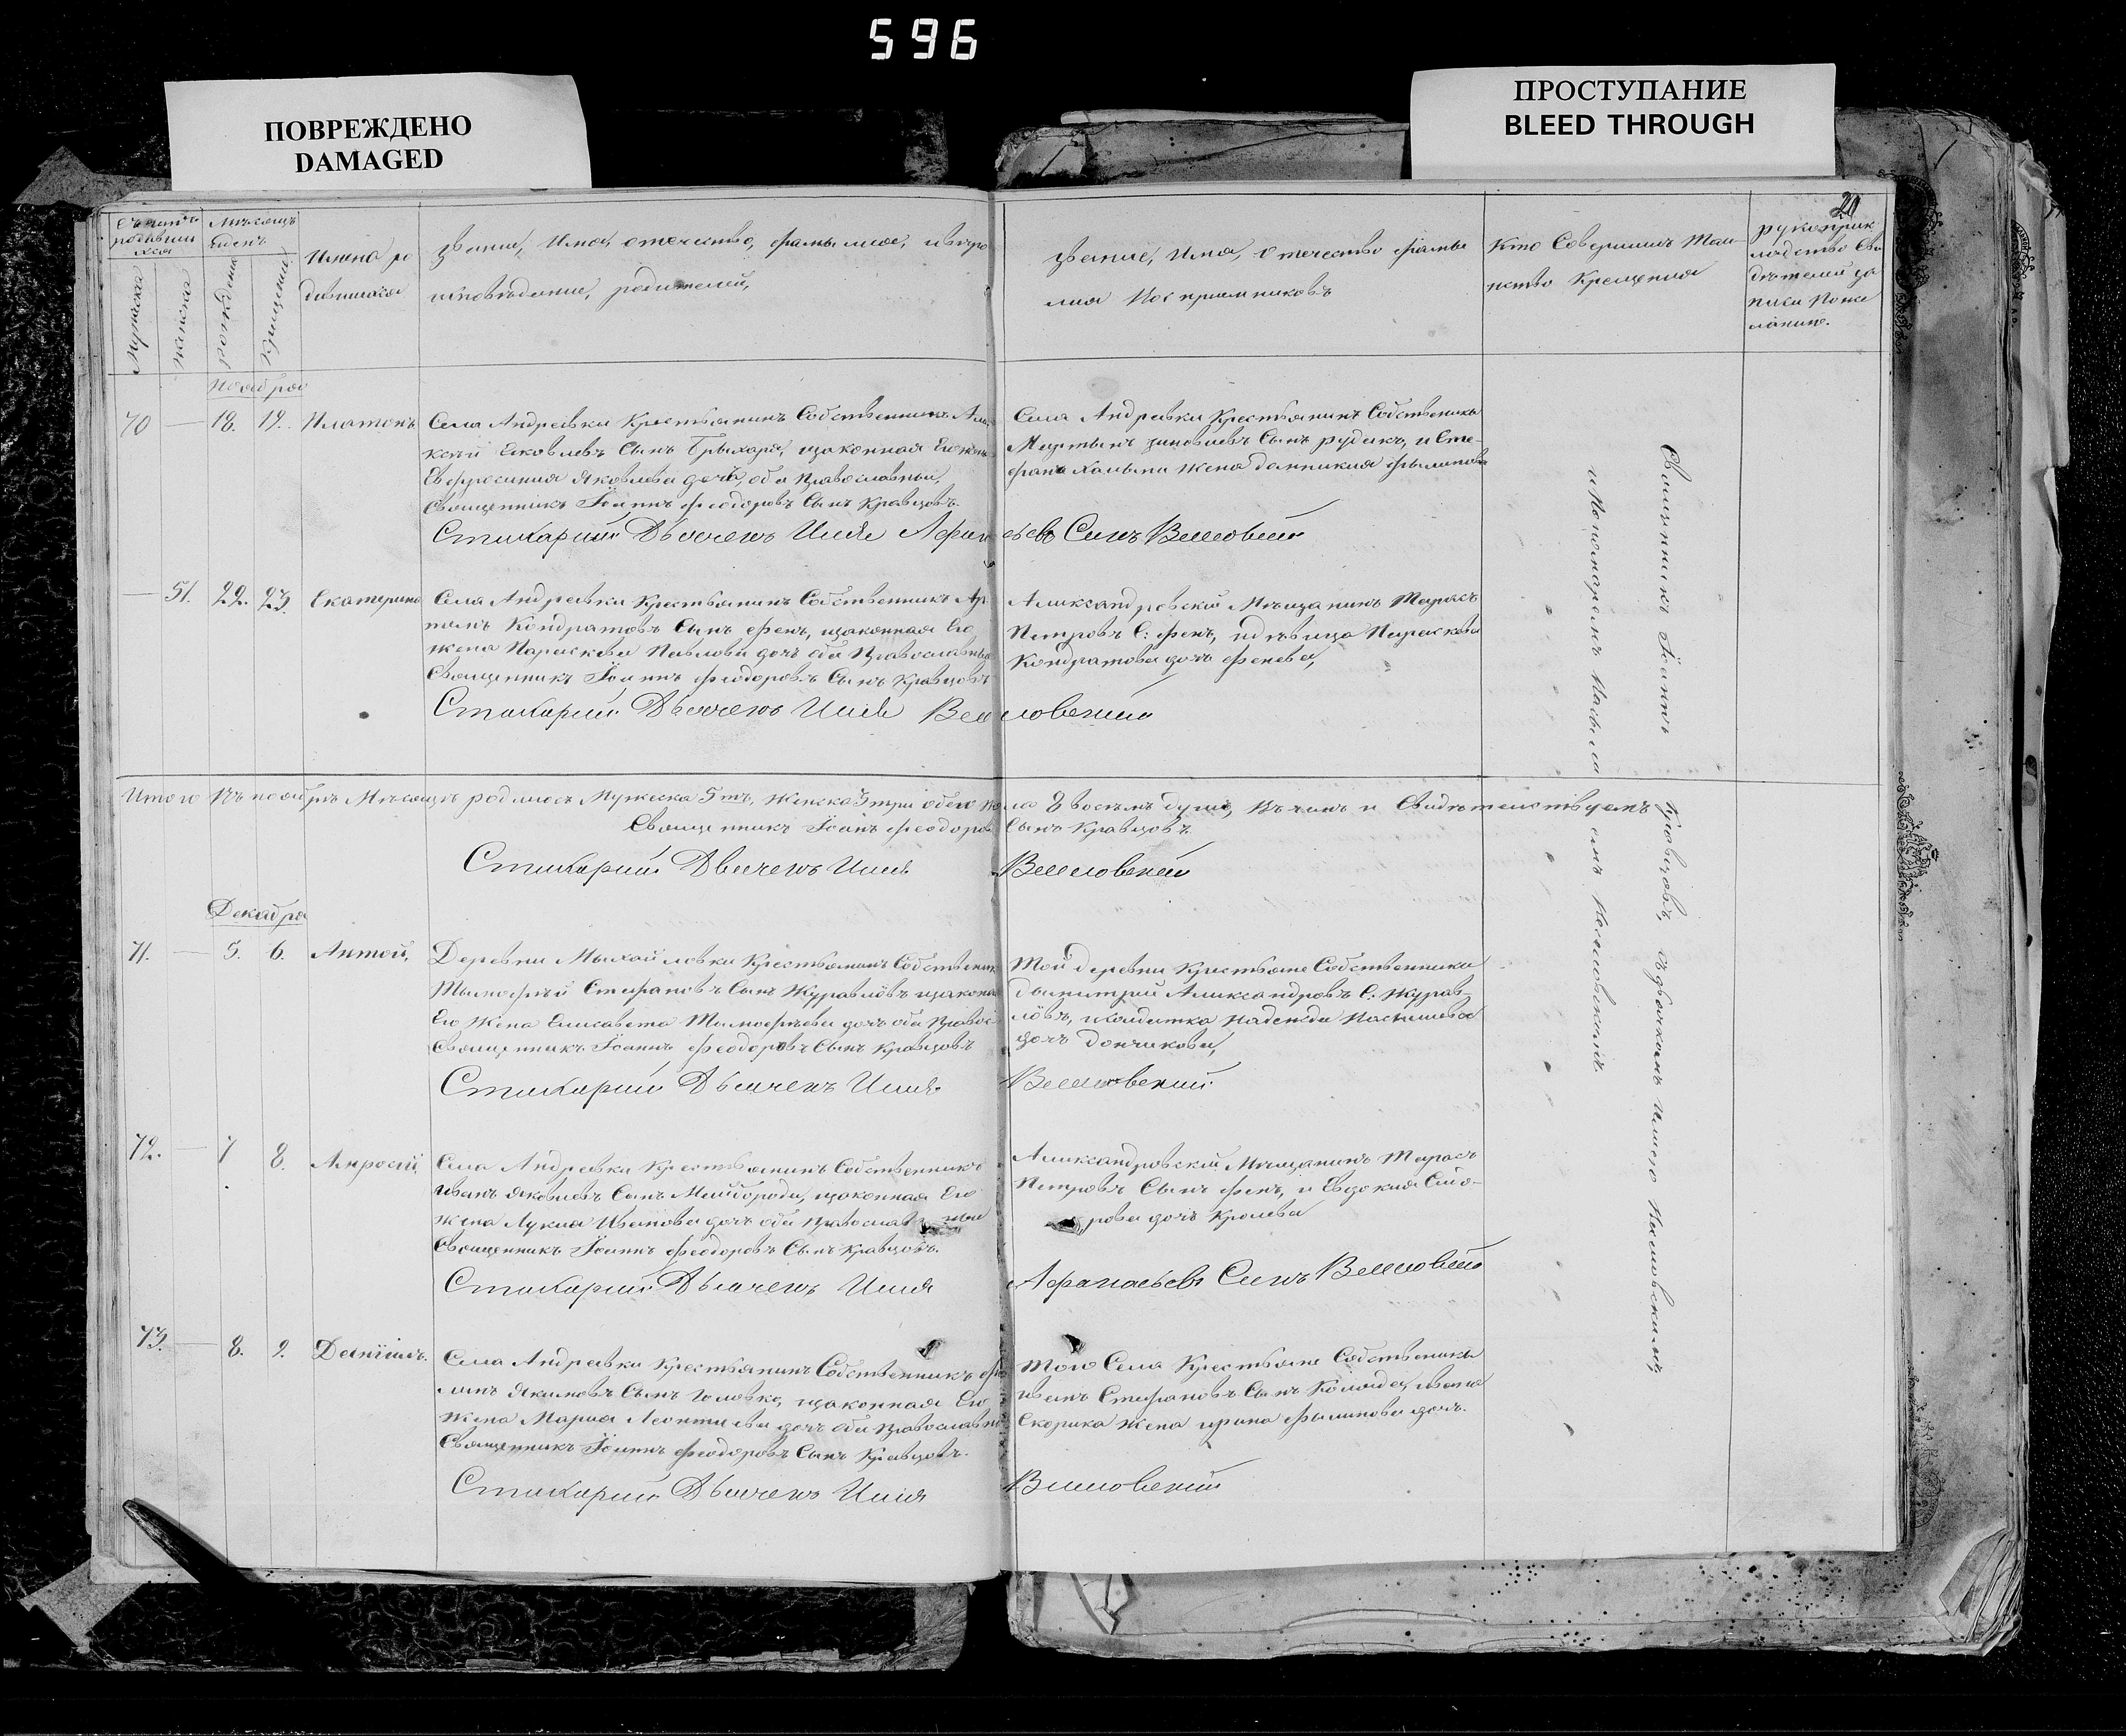 596
ПОВРЕЖДЕНО
DAMAGED
ПРОСТУПАНИЕ
BLEED THROUGH
20
Мужеска
Женска
рождения
Крещения
Имина ро
дившихся
Звание, Имя, отечество, фамылия,
исповѣдание, родителей,
Звание, Имя, Отечество фамы
лия Восприемниковъ
Кто Совершилъ Таи-
нство Крещения
рукоприк
ладство Сви
дѣтелей за
писи Поже
ланию.
Ноября
70 — 18. 19. Платонъ
Села Андреевки Крестьянинъ Собственникъ Але
ксѣй Яковлевъ Сынъ законная Его жена
Евфросиния Яковлева дочь, оба Православныи,
Священникъ Іоаннъ Феодоровъ Сынъ Кравцовъ.
Стихарний Дьячекъ Илія Афан
Села Андреевки Крестьянинъ Собственникъ
Мартынъ Зиновиевъ Сынъ рудыкъ, и Сте-
фана жена Филипова
асьевъ Синъ
— 51. 22. 23. Екатерина
Села Андреевки Крестьянинъ Собственникъ Ар
Кондратовъ Сынъ Фень, законная Его
жена Параскева Павлова дочь оба Православныи
Священникъ Іоаннъ Феодоровъ Сынъ Кравцовъ
Стихарний Дьячекъ Илія
Александровский Мѣщанинъ Тарасъ
Петровъ С: Фень, и дѣвица Параскева
Кондратова дочь Фенева,
Итого Въ ноябрѣ Мѣсяцѣ родилось Мужеска 5ть, Женска 3 три обего пола 8 восемъ душъ, Въ чемъ и Свидѣтелствуемъ
Священникъ Іоанъ Феодоровъ Сынъ Кравцовъ.
Стихарний Дьячекъ Илія
Декабря
71. — 5. 6. Антоній,
Деревни Мыхайловки Крестьянинъ Собственикъ
Тымофѣй Стефановъ Сынъ Журавлёвъ законая
Его Жена Елисавета Тымофѣева дочь оба Правос
Священникъ Іоаннъ Феодоровъ Сынъ Кравцовъ
Стихарний Дьячекъ Илія
Той деревни Крестьяне Собственники
Дымитрий Александровъ С. Журав-
лёвъ, и Солдатка Надежда
дочь Дончикова,
72. — 7 8. Амросий
Села Андреевки Крестьянинъ Собственникъ
Иванъ Яковлевъ Сынъ Майборода, законная Его
жена Лукия Иванова дочь оба Православныи
Священникъ Іоаннъ Феодоровъ Сынъ Кравцовъ.
Стихарний Дьячекъ Илія
Александровский Мѣщанинъ Тарасъ
Петровъ Сынъ Фень, и Евдокия Сидо-
рова дочь Кролева
Афанасьевъ Синъ
73. — 8. 9. Даніилъ.
Села Андреевки Крестьянинъ Собственникъ
Якимовъ Сынъ Головко, законная Его
жена Мария Леонтиева дочь оба Православныи
Священникъ Іоаннъ Феодоровъ Сынъ Кравцовъ.
Стихарний Дьячекъ Илія
Того Села Крестьяне Собственики
Иванъ Стефановъ Сынъ Коломиец, Ивана
Скорика жена Ирина Филипова дочь.
Священникъ Іоаннъ Кравцовъ, съ дьячкомъ Илиею
и Пономаремъ